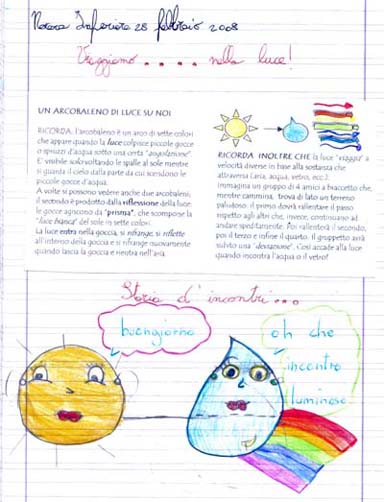 Nocera Inferiore 28 febbraio 2008
Viaggiamo.... nella luce!
UN ARCOBALENO DI LUCE SU NOI
RICORDA. l'arcobaleno è un arco di sette colori
che appare quando la luce colpisce piccole gocce
o spruzzi d'acqua sotto una certa "angolazione".
E' visibile solo voltando le spalle al sole mentre
si guarda il cielo dalla parte da cui scendono le
piccole gocce d'acqua.
A volte si possono vedere anche due arcobaleni;
il secondo è prodotto dalla riflessione della luce:
le gocce agiscono da "prisma", che scompone la
"luce bianca" del sole in sette colori.
La luce entra nella goccia, si rifrange, si riflette
all'interno della goccia e si rifrange nuovamente
quando lascia la goccia e rientra nell'aria.
RICORDA INOLTRE CHE la luce "viaggia" a
velocità diverse in base alla sostanza che
attraversa (aria, acqua, vetro, ecc.).
Immagina un gruppo di 4 amici a braccetto che,
mentre cammina, trova di lato un terreno
paludoso: il primo dovrà rallentare il passo
rispetto agli altri che, invece, continuano ad
andare speditamente. Poi rallenterà il secondo,
poi il terzo e infine il quarto. Il gruppetto avrà
subito una "deviazione". Così accade alla luce
quando incontra l'acqua o il vetro!
Storia d'incontri...
buongiorno
oh che
incontro
luminoso